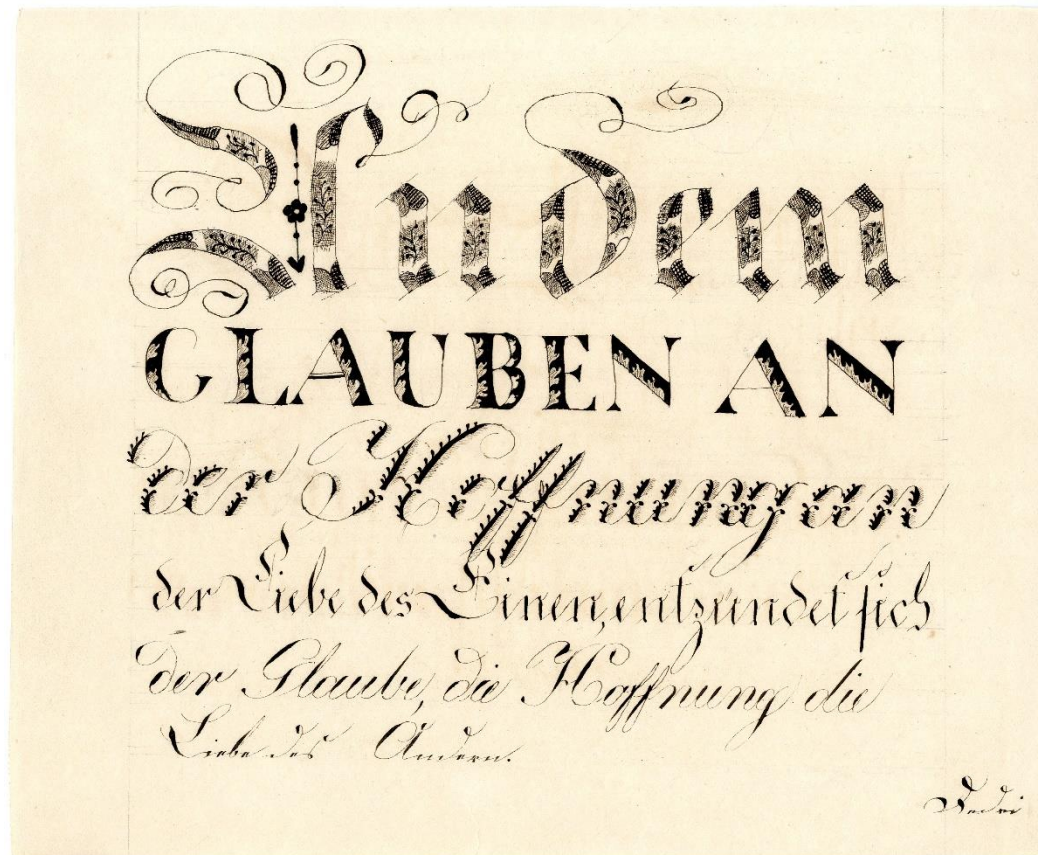 An dem
GLAUBEN AN
der Hoffnung an
der Liebe des Einen, entzundet sich
der Glaube, die Hoffnung die
Liebe des Andern.